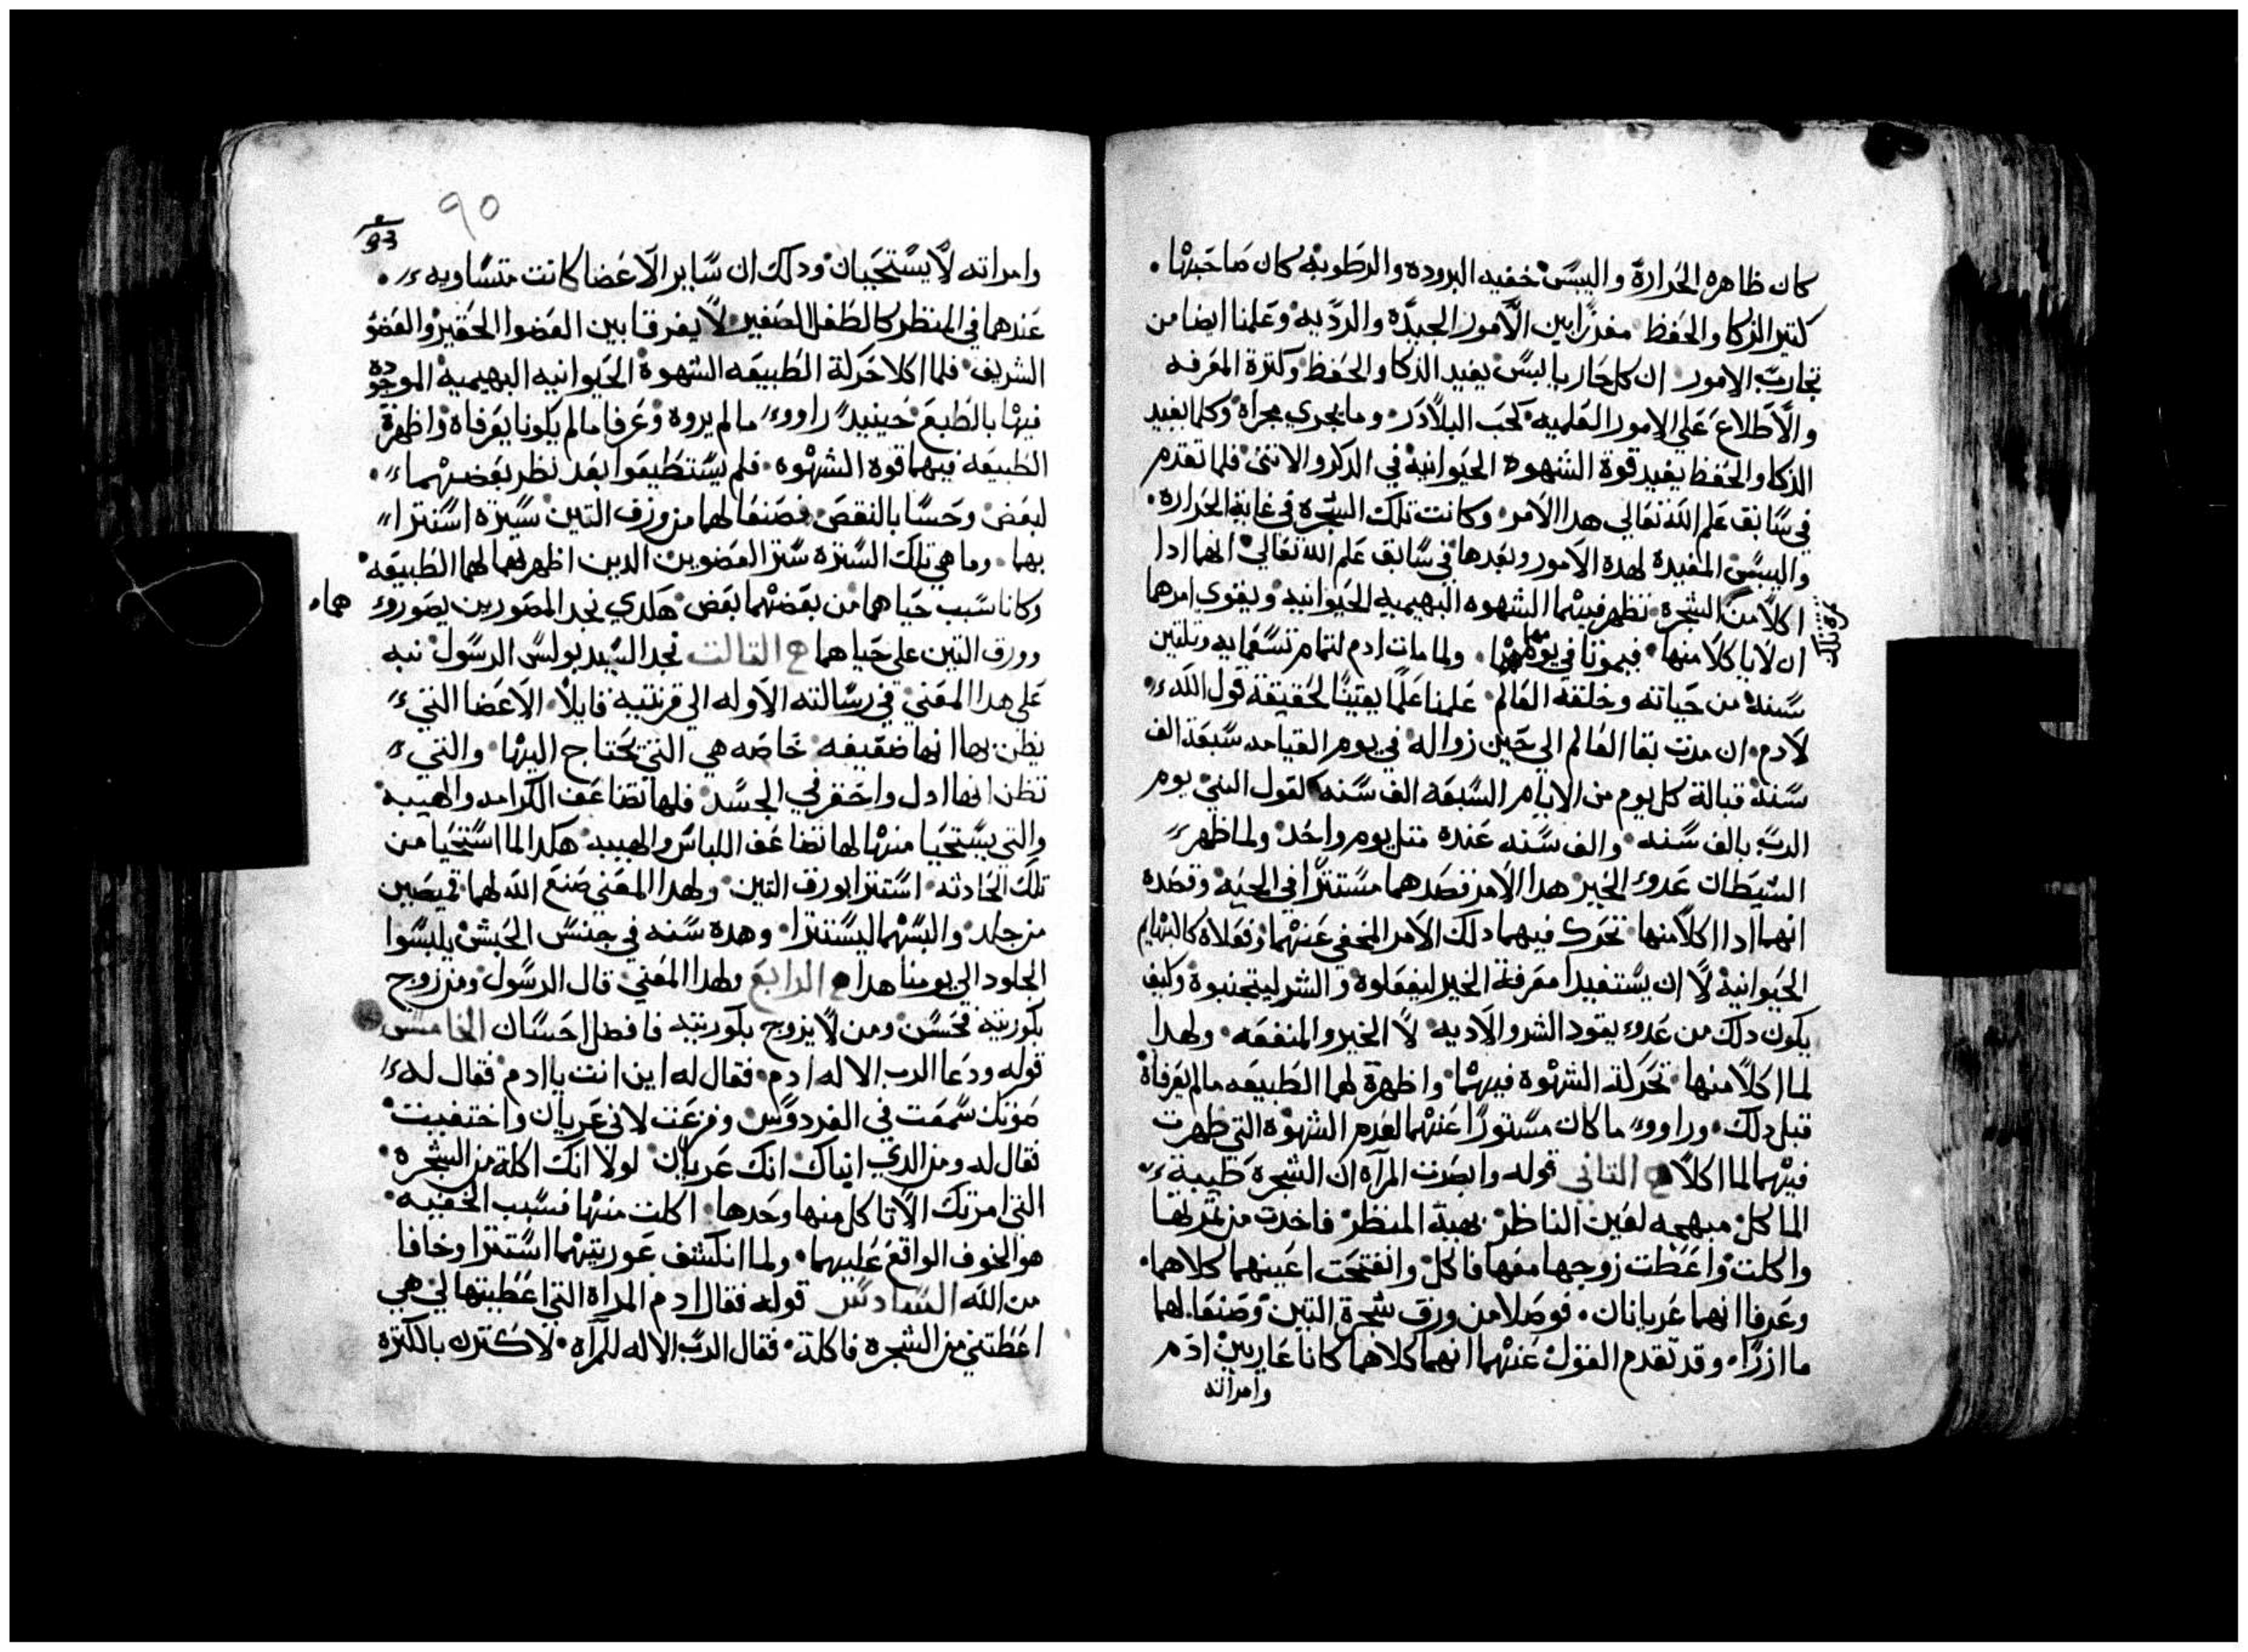 كان ظاهره الحراره واليبس خفيه البروده والرطوبه كان صاحبها
كتير الزكا والحفظ مفرزا بين الامور الجيده والرديه وعلمنا ايضا من
تجارب الامور ان كل حار يابس يفيد الدكا والحفظ وكترة المعرفه
والاطلاع علي الامور العلميه كحب البلادر وما يجري مجراه وكلما يفيد
الدكا والحفظ يفيد قوة الشهوه الحيوانيه في الدكر والانتى فلما تقدم
في سابق علم الله تعالى هدا الامر وكانت تلك الشجره في غاية الحراره
واليبس المفيدة لهده الامور وبعدها في سابق علم الله تعالي انهما ادا
اكلا من الشجره تظهر فيهما الشهوه البهيميه الحيوانيه ويقوي امرهما
ثمرة تلك
ان لا ياكلا منها فيموتا في يومهما ولما مات ادم لتمام تسعمايه وتلتين
سنه من حياته وخلقه العالم علمنا علما يقينا لحقيقة قول الله
لادم ان مدت بقا العالم الي حين زواله في يوم القيامه سبعة الف
سنه قبالة كل يوم من الايام السبعه الف سنه لقول النبي يوم
الرب بالف سنه والف سنه عنده متل يوم واحد ولما ظهر
الشيطان عدو الخير هدا الامر قصدهما مستترا في الحيه وقصده
انهما ادا اكلا منها تحرك فيهما دلك الامر المخفي عنهما وفعلاه كالبهايم
الحيوانيه لا ان يستفيدا معرفة الخير ليفعلوه والشر ليتجنبوه وكيف
يكون دلك من عدو يقود الشر والاديه لا الخير والمنفعه ولهدا
لما اكلا منها تحركة الشهوه فيهما واظهرة لهما الطبيعه ما لم يعرفاه
قبل دلك وراوو ما كان مستورا عنهما لعدم الشهوه التي ظهرت
فيهما لما اكلا ح التاني قوله وابصرت المراه ان الشجره طيبة
الماكل مبهجه لعين الناظر بهية المنظر فاخدت من ثمرتها
واكلت واعطت زوجها معها فاكل وانفتحت اعينهما كلاهما
وعرفا انهما عريانان فوصلا من ورق شجرة التين وصنعا لهما
ما ازرا وقد تقدم القول عنهما انهما كلاهما كانا عاريين ادم
وامراته
٩٥
93
وامراته لا يستحيان ودلك ان ساير الاعضا كانت متساويه
عندهما في المنظر كالطفل الصغير لا يفرقا بين العضوا الحقير والعضو
الشريف فلما اكلا حركة الطبيعه الشهوة الحيوانيه البهيميه الموجوده
فيها بالطبع حينيد راوو ما لم يروه وعرفا ما لم يكونا يعرفاه واظهرة
الطبيعه فيهما قوة الشهوه فلم يستطيعوا بعد نظر بعضهما
لبعض وحسا بالنقص فصنعا لهما من ورق التين سترة استترا
بها وما هي تلك السترة ستر العضوين الدين اظهرتهما لهما الطبيعه
وكانا سبب حياهما من بعضهما بعض هكدي نجد المصورين يصورو هما
وورق التين علي حياهما ح التالت نجد السيد بولس الرسول نبه
علي هدا المعني في رسالته الاوله الي قرنتيه قايلا الاعضا التي
يظن بها انها ضعيفه خاصه هي التي يحتاج اليها والتي
تظن انها ادل واحقر في الجسد فلها تضاعف الكرامه والهيبه
والتي يستحيا منها لها تضاعف اللباس والهيبه هكدا لما استحيا من
تلك الحادته استترا بورق التين ولهدا المعني صنع الله لهما قميصين
من جلد والبسهما ليستترا وهده سنه في جنس الحبش يلبسوا
الجلود الي يومنا هدا ح الرابع ولهدا المعني قال الرسول ومن زوج
بكوريته فحسن ومن لا يزوج بكوريته فافضل احسان الخامس
قوله ودعا الرب الاله ادم فقال له اين انت يا ادم فقال له
صوتك سمعت في الفردوس وفزعت لاني عريان واختفيت
فقال له ومن الدي انباك انك عريان لولا انك اكلة من الشجره
التي امرتك الا تاكل منها وحدها اكلت منها فسبب الخفيه
هو الخوف الواقع عليهما ولما انكشف عوريتهما استترا وخافا
من الله السادس قوله فقال ادم المراه التي اعطيتها لي هي
اعطتني من الشجره فاكلة فقال الرب الاله للمراه لاكترن بالكتره